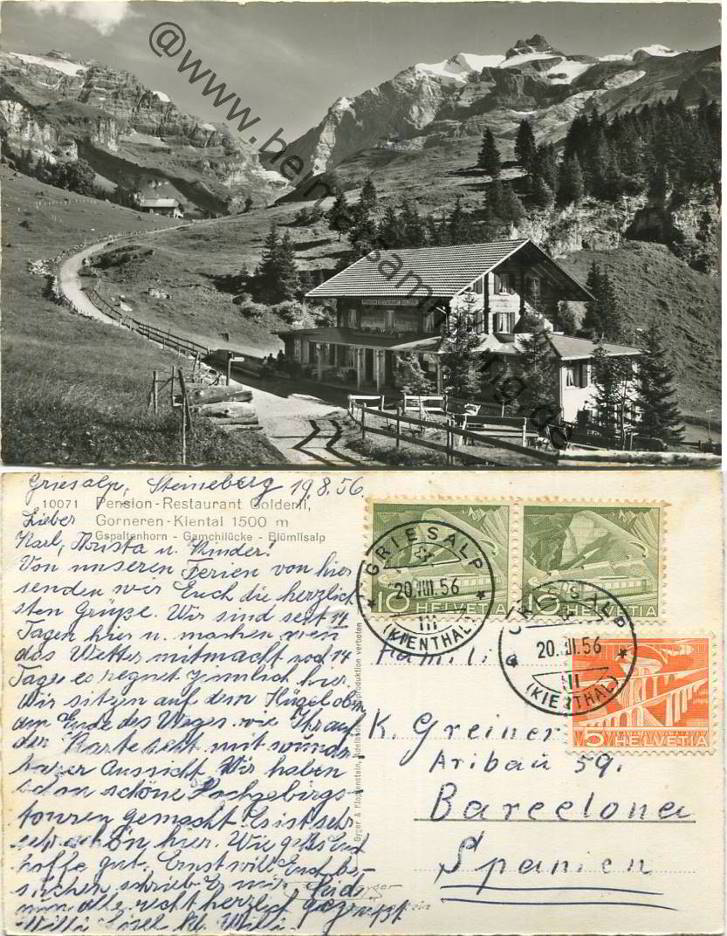 @www.heimatsammlung.de
Griesalp, Steineberg 19.8.56.
10071 Pension-Restaurant Golderli,
Gorneren-Kiental 1500 m
Gspaltenhorn - Gamchilücke - Blümlisalp
Lieber
Karl, Krista u. Kinder!
Von unseren Ferien von hier
senden wir Euch die herzlich
sten Grüße. Wir sind seit 14
Tagen hier u. machen wen
das Wetter mitmacht noch 14
Tage es regnet ziemlich hier.
Wir sitzen auf dem Hügel oben
am Ende des Weges wie Ihr auf
der Karte seht mit wunder
barer Aussicht. Wir haben
schöne Hochgebirgs-
touren gemacht. Es ist sehr
sehr schön hier. Wie gehts Euch
hoffe gut. Ernst will Euch be-
suchen schrieb Er mir. Seid
nun alle recht herzlich gegrüsst
Willi
GRIESALP
20.VIII.56
(KIENTHAL)
10 HELVETIA
10 HELVETIA
GRIESALP
20.VIII.56
(KIENTHAL)
5 HELVETIA
Famili
K. Greiner
Aribau 59.
Barcelona
Spanien